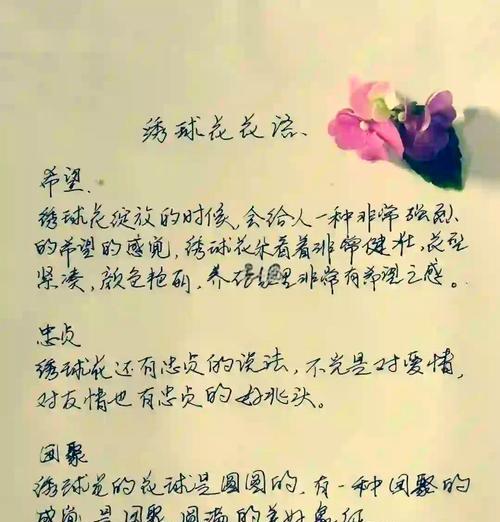 绣球花花语、
希望、
绣球花绽放的时候,会给人一种非常强烈
的希望的感觉,绣球花朵看着非常健壮,花型
紧凑,颜色艳丽,养在里非常有希望之感。
忠贞
绣球花还有忠贞的说法,不光是对爱情,
对友情也有忠贞的好兆头。
团聚
绣球花的花球是圆圆的,有一种团聚的
感觉,是团聚、圆满的美好象征